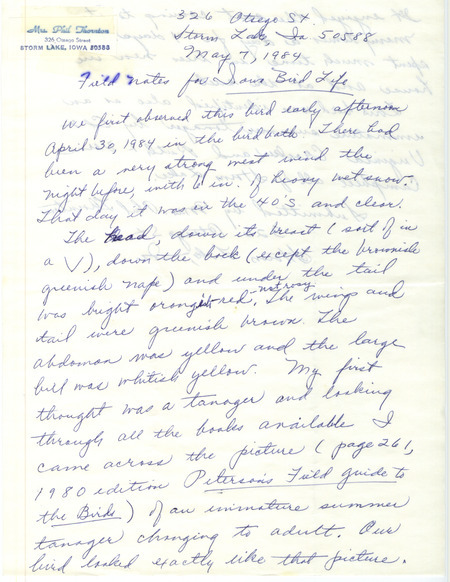 Mrs. Phil Thornton
326 Otsego Street
STORM LAKE, IOWA 50588
326 Otsego St.
Storm Lake, Ia 50588
May 7, 1984
Field notes for Iowa Bird Life
We first observed this bird early afternoon
April 30, 1984 in the birdbath. There had
been a very strong west wind the
night before, with 6 in. of heavy wet snow.
That day it was in the 40's and clear.
The head, down its breast (sort of in
a V), down the back (except the brownish
greenish nape) and under the tail
not rosy
was bright orangish-red. The wings and
tail were greenish brown. The
abdoman was yellow and the large
bill was whitish yellow. My first
thought was a tanager and looking
through all the books available I
came across the picture (page 261,
1980 edition Peterson's Field guide to
the Birds) of an immature summer
tanager changing to adult. Our
bird looked exactly like that picture.